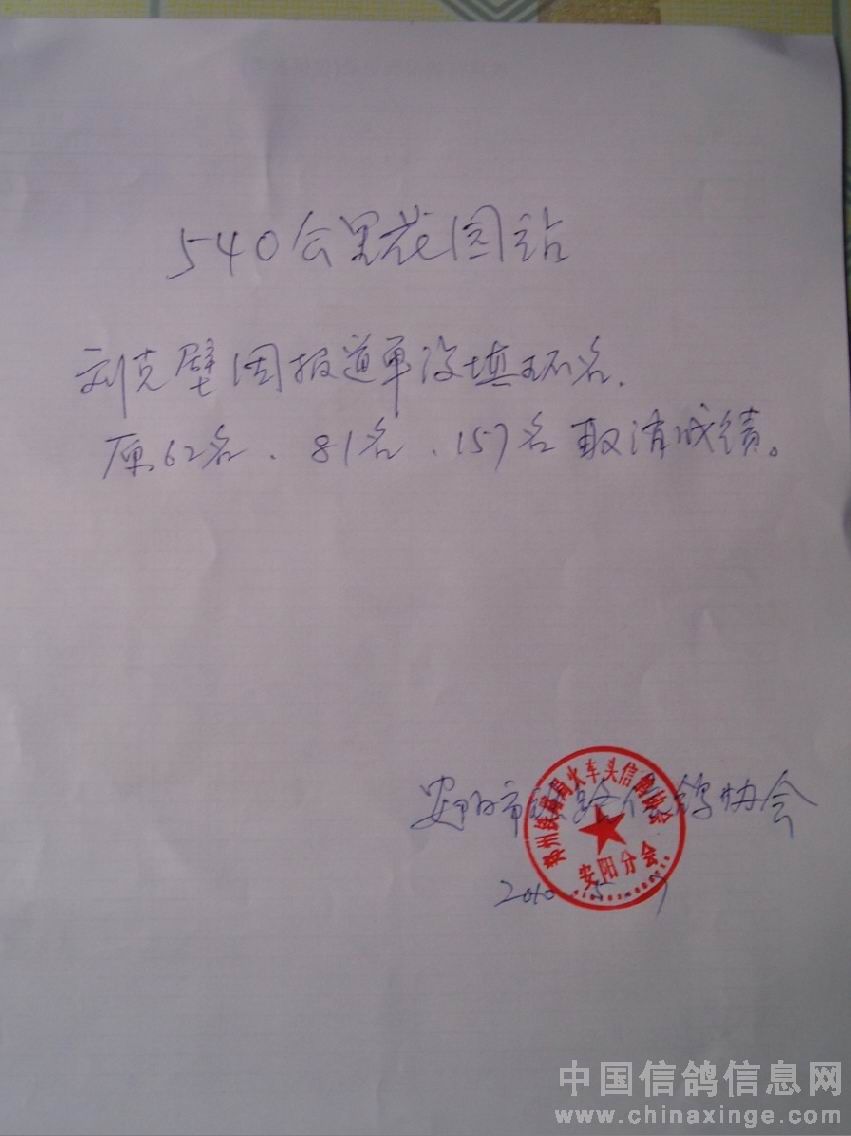 540公里花园站
刘克壁因报道单没填环名.
原62名、81名、157名取消成绩。
安阳市铁路信鸽协会
郑州铁路局火车头信鸽协会
安阳分会
2010
中国信鸽信息网
www.chinaxinge.com